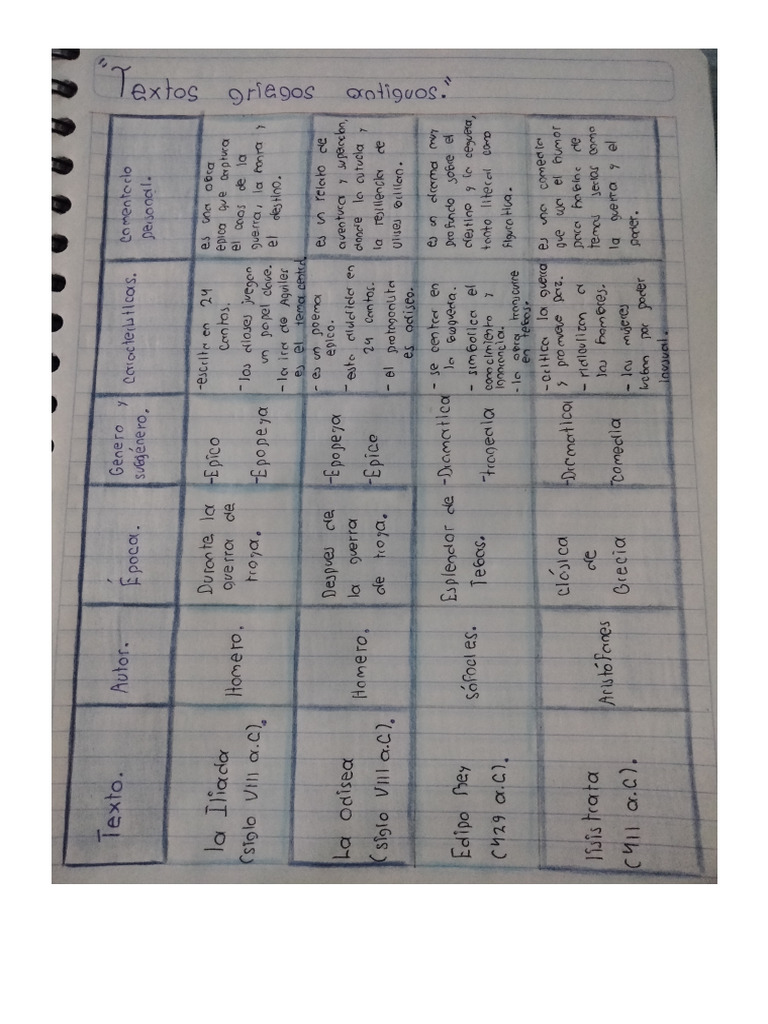 "Textos griegos antiguos."
Texto.
Autor.
Época.
Género y
subgénero.
Características.
Comentario
personal.
la Iliada
(siglo VIII a.C).
Homero.
Durante la
guerra de
troya.
-Epico
-Epopeya
-escrita en 24
cantos.
-los dioses juegan
un papel clave.
-la ira de Aquiles
es el tema central
es una obra
epica que captura
el caos de la
guerra, la honra y
el destino.
La Odisea
(siglo VIII a.C).
Homero.
Despues de
la guerra
de troya.
-Epopeya
-Epico
- es un poema
epico.
- esta dividida en
24 cantos.
- el protagonista
es odiseo.
es un relato de
aventura y superación,
donde la astucia y
la resiliencia de
Ulises brillan.
Edipo Rey
(429 a.C).
Sófocles.
Esplendor de
Tebas.
-Dramatica
-tragedia
- se centra en
la busqueda.
- simboliza el
conocimiento y
ignorancia.
-la obra transcurre
en tebas.
es un drama muy
profundo sobre el
destino y la ceguera,
tanto literal como
figurativa.
lisistrata
(411 a.C).
Aristófanes
clásica
de
Grecia
-Dramatica
comedia
-critica la guerra
y promueve paz.
- ridiculizan a
los hombres.
- las mujeres
luchan por poder
inusual.
es una comedia
que usa el humor
para hablar de
temas serios como
la guerra y el
poder.